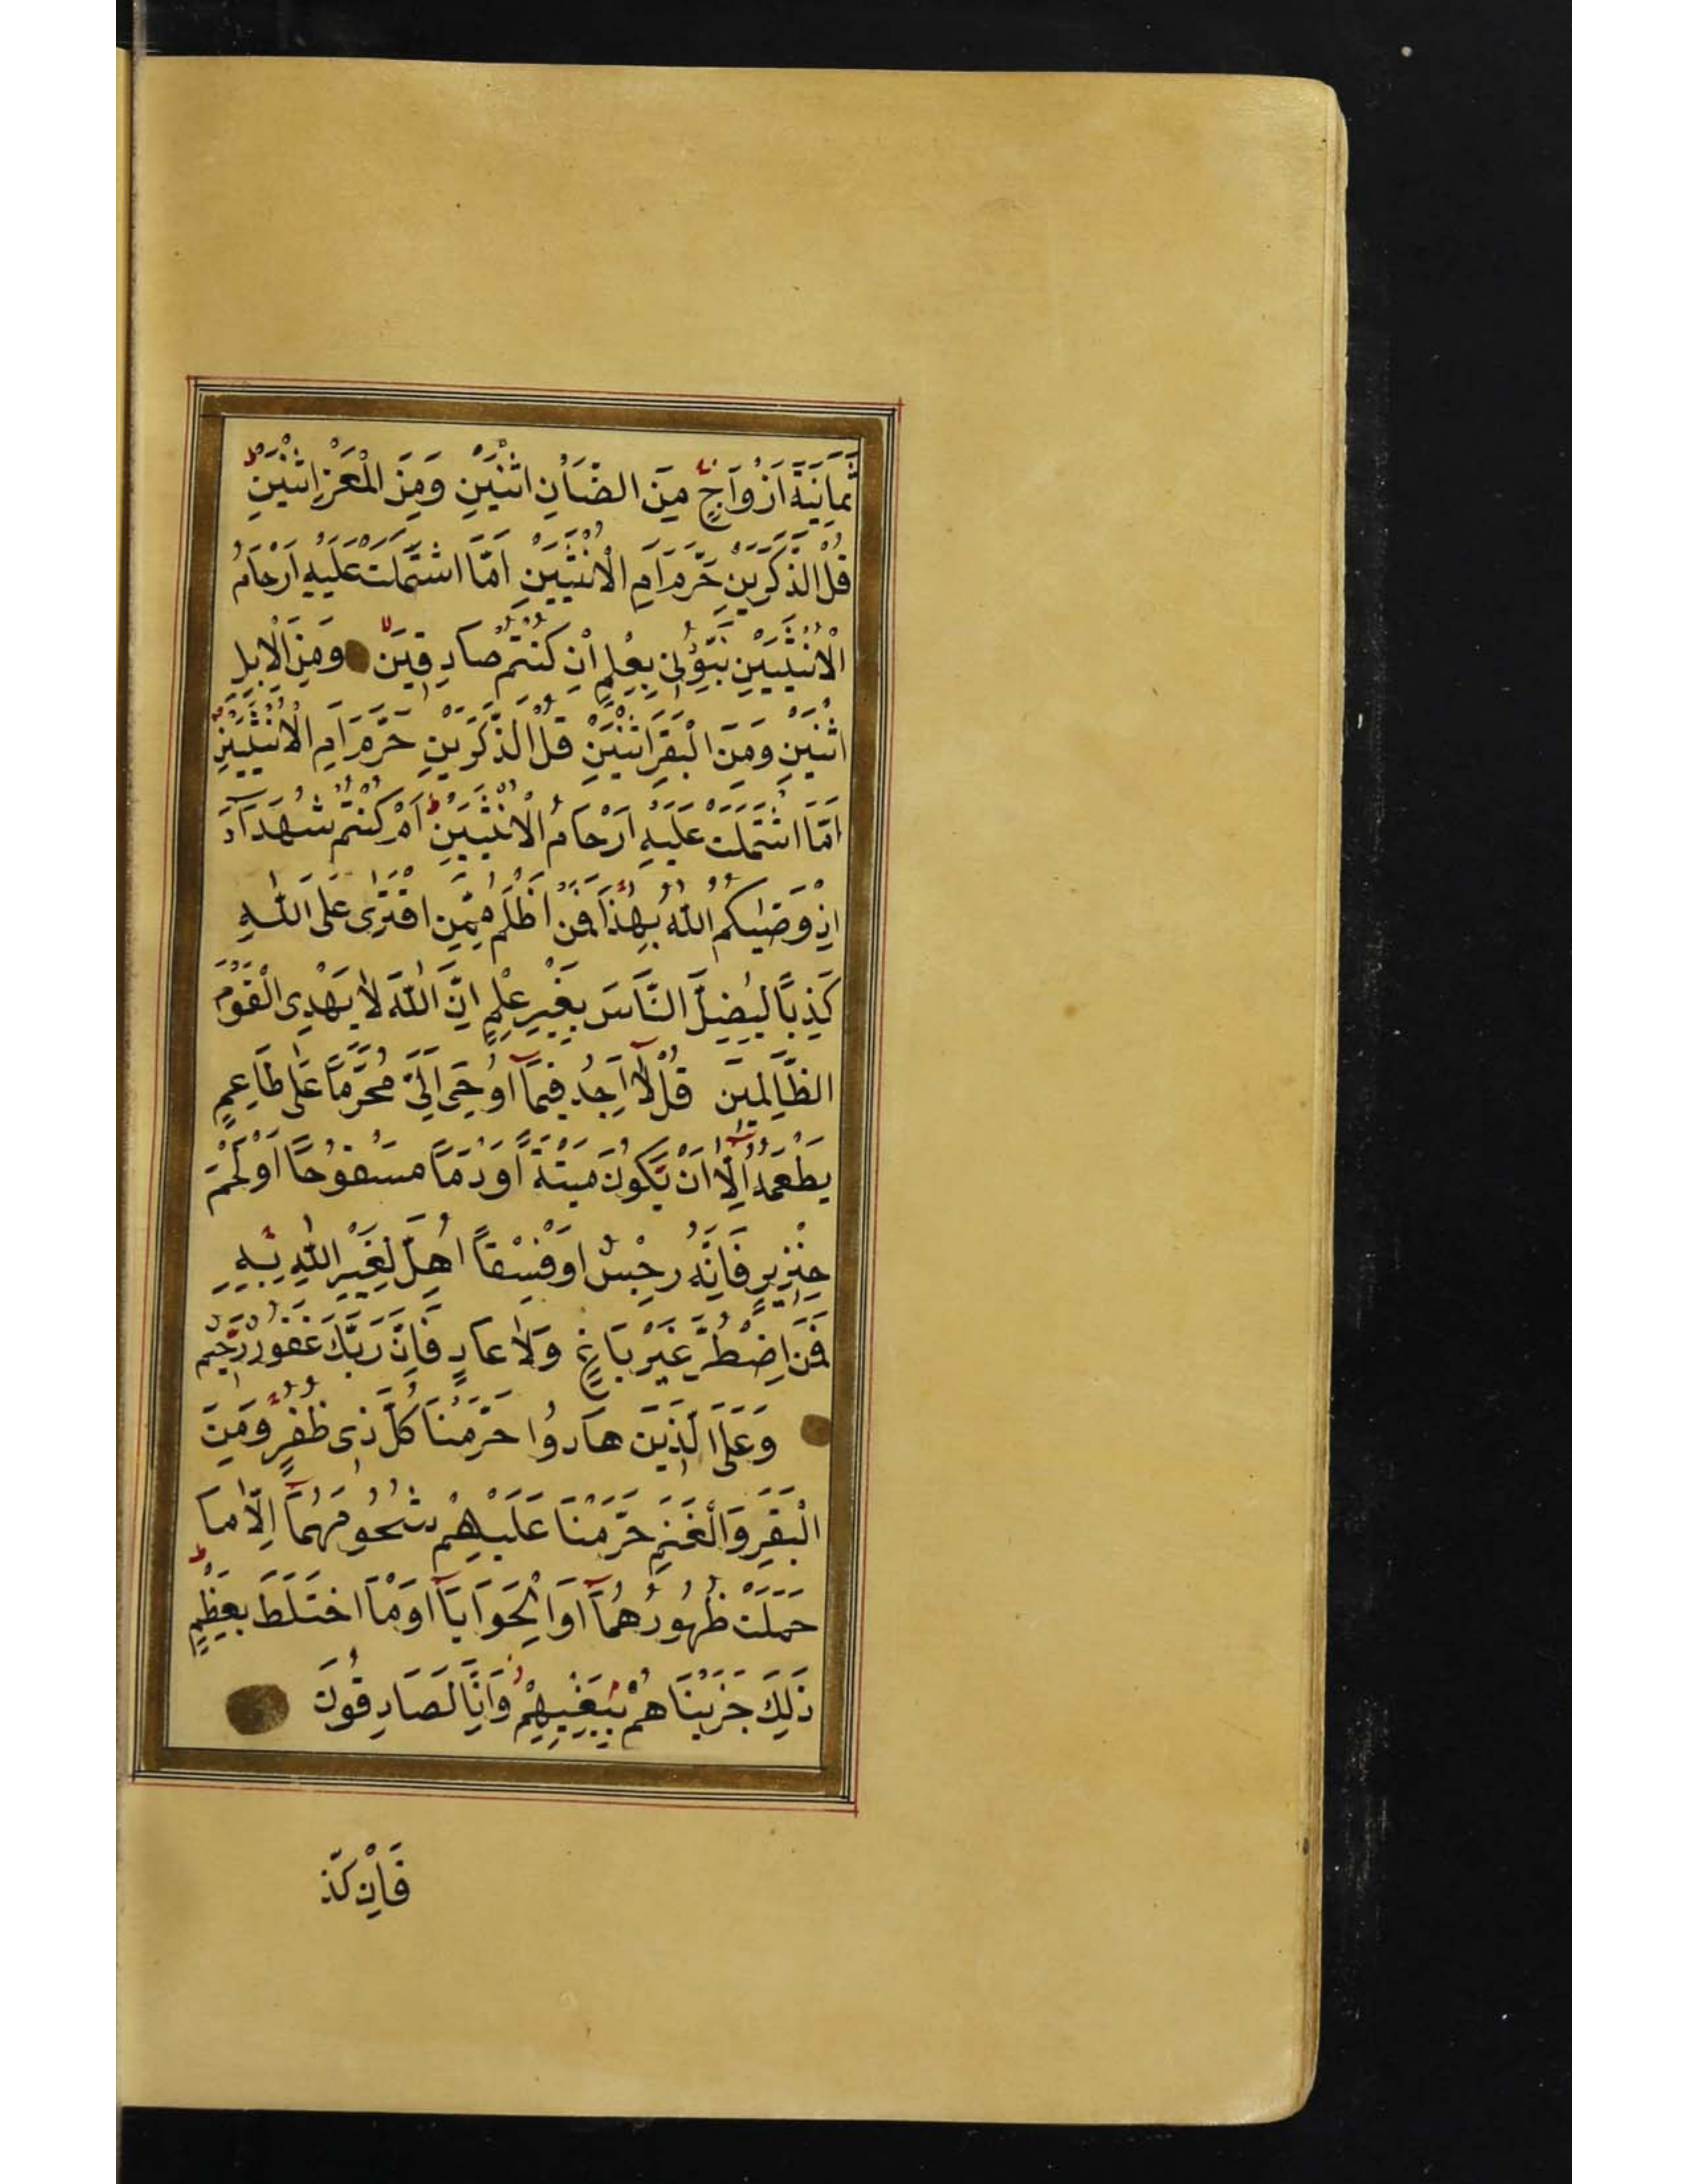 ثَمَانِيَةَ اَزْوَاجٍ مِنَ الضَّاْنِ اثْنَيْنِ وَمِنَ الْمَعْزِ اثْنَيْنِ
قُلْ الذَّكَرَيْنِ حَرَّمَ اَمِ الْاُنْثَيَيْنِ اَمَّا اشْتَمَلَتْ عَلَيْهِ اَرْحَامُ
الْاُنْثَيَيْنِ نَبِّؤُنِى بِعِلْمٍ اِنْ كُنْتُمْ صَادِقِيَنَ وَمِنَ الْاِبِلِ
اثْنَيْنِ وَمِنَ الْبَقَرِ اثْنَيْنِ قُلْ الذَّكَرَيْنِ حَرَّمَ اَمِ الْاُنْثَيَيْنِ
اَمَّا اشْتَمَلَتْ عَلَيْهِ اَرْحَامُ الْاُنْثَيَيْنِ اَمْ كُنْتُمْ شُهَدَآءَ
اِذْ وَصّٰيكُمُ اللّٰهُ بِهٰذَا فَمَنْ اَظْلَمُ مِمَّنِ افْتَرٰى عَلَى اللّٰهِ
كَذِبًا لِيُضِلَّ النَّاسَ بِغَيْرِ عِلْمٍ اِنَّ اللّٰهَ لَا يَهْدِى الْقَوْمَ
الظَّالِمِيَن قُلْ لَآ اَجِدُ فِيمَآ اُوحِىَ اِلَىَّ مُحَرَّمًا عَلٰى طَاعِمٍ
يَطْعَمُهُ اِلَّآ اَنْ يَكُونَ مَيْتَةً اَوْ دَمًا مَسْفُوحًا اَوْ لَحْمَ
خِنْزِيرٍ فَاِنَّهُ رِجْسٌ اَوْ فِسْقًا اُهِلَّ لِغَيْرِ اللّٰهِ بِهِ
فَمَنِ اضْطُرَّ غَيْرَ بَاغٍ وَلَا عَادٍ فَاِنَّ رَبَّكَ غَفُورٌ رَحِيمٌ
وَعَلَى الَّذِينَ هَادُوا حَرَّمْنَا كُلَّ ذِى ظُفُرٍ وَمِنَ
الْبَقَرِ وَالْغَنَمِ حَرَّمْنَا عَلَيْهِمْ شُحُومَهُمَآ اِلَّا مَا
حَمَلَتْ ظُهُورُهُمَآ اَوِ الْحَوَايَآ اَوْ مَا اخْتَلَطَ بِعَظْمٍ
ذٰلِكَ جَزَيْنَاهُمْ بِبَغْيِهِمْ وَاِنَّا لَصَادِقُونَ
فَاِنْ كَذَّ